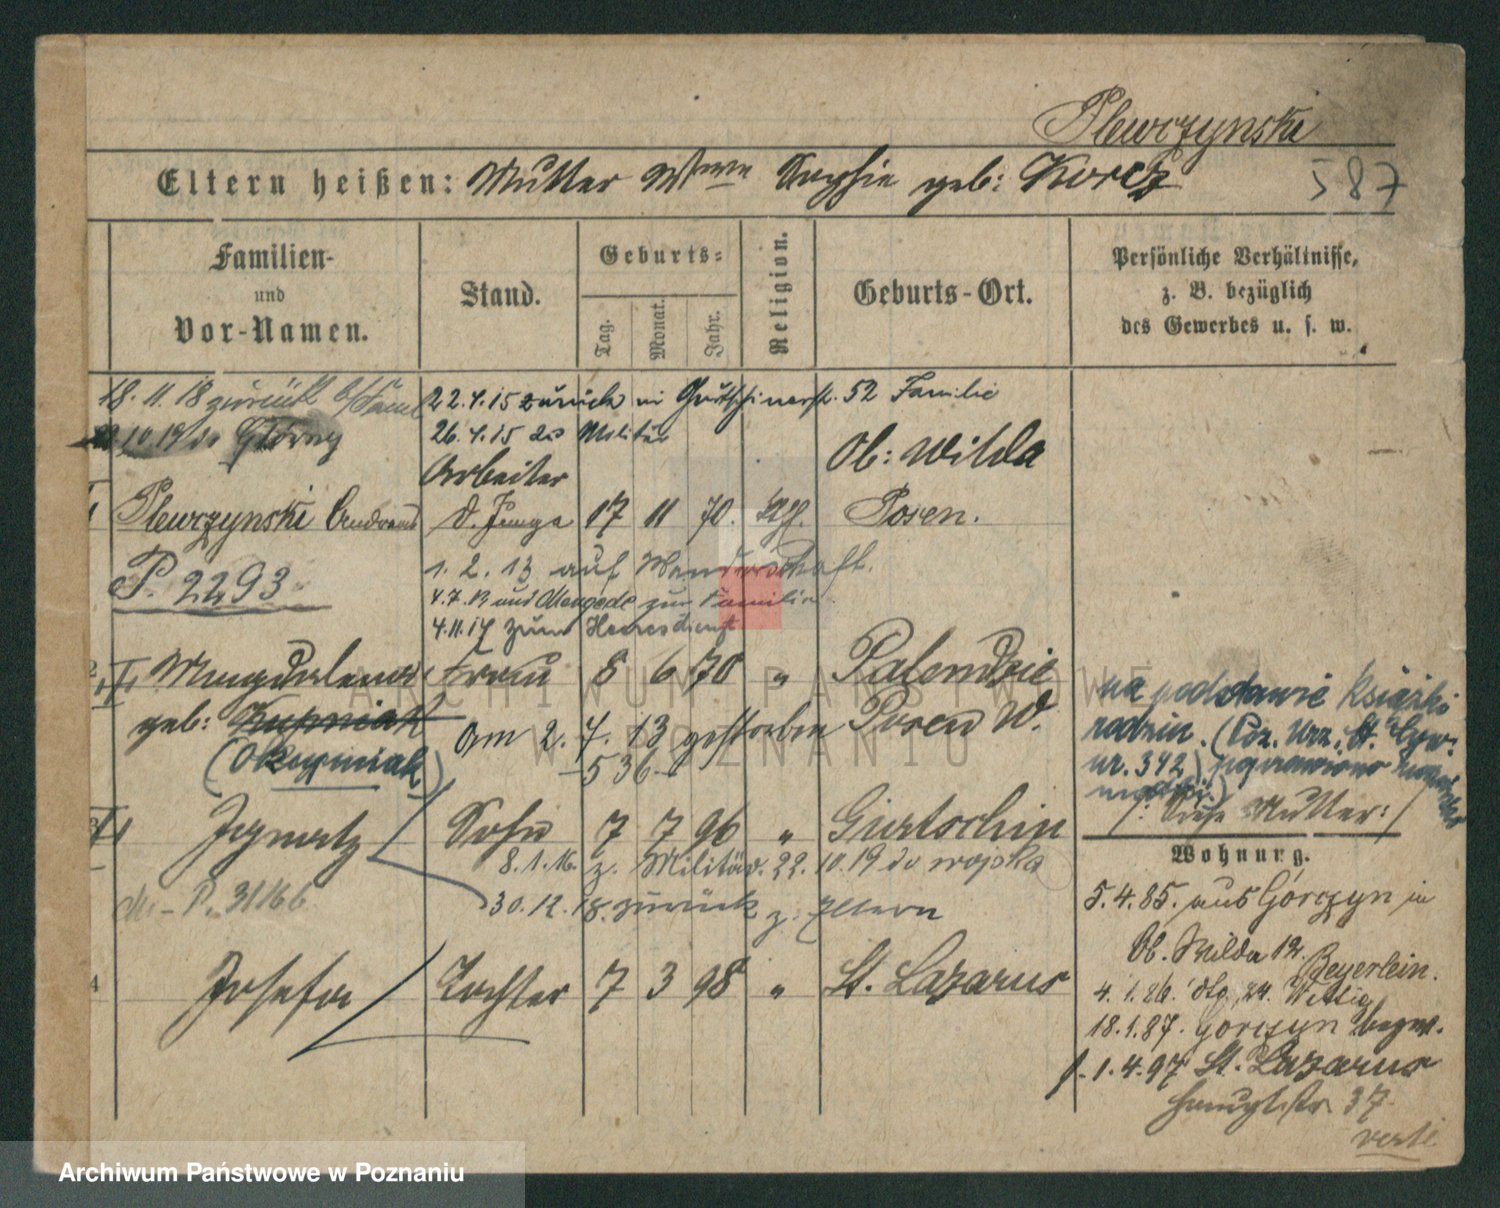 Plewczynski
Eltern heißen: Mutter Wwe Sophie geb: Korcz 587
Familien- und Vor-Namen.
Stand.
Geburts-
Tag. Monat. Jahr.
Religion.
Geburts-Ort.
Persönliche Verhältnisse,
z. B. bezüglich
des Gewerbes u. s. w.
18. 11. 18 zurück
22.4.15 zurück in Gurtschinerstr. 52 Familie
26.4.15 zum Militär
Ob: Wilda
Arbeiter
1 Plewczynski Andreas 17 11 70. Posen.
P. 2293
1. 2. 13 auf Wanderschaft.
zur Familie
4.11.17 zum Heeresdienst
2 Magdalena Frau 8 6 70 " Palendzie
geb: Kupniak Posen W.
am 2. 4. 13 gestorben
536
na podstawie książki
rodzin. (Poz. Urz. St. Cyw.
nr. 342) poprawiono
3 Ignatz Sohn 7 7 96 " Gurtschin
/: Siehe Mutter: /
8.1.16. z. Militär. 22. 10. 19 do wojska
P. 31166
30. 12. 18. zurück z. Eltern
4 Josefa Tochter 7 3 98 " St. Lazarus
Wohnung.
5.4.85. aus Górczyn in
Ob. Wilda 12. Beyerlein.
4. 1. 86. 24. Wittig
18.1.87. Gorczyn bezw.
1.4.97 St. Lazarus
Hauptstr. 37
verte
ARCHIWUM PAŃSTWOWE
W POZNANIU
Archiwum Państwowe w Poznaniu